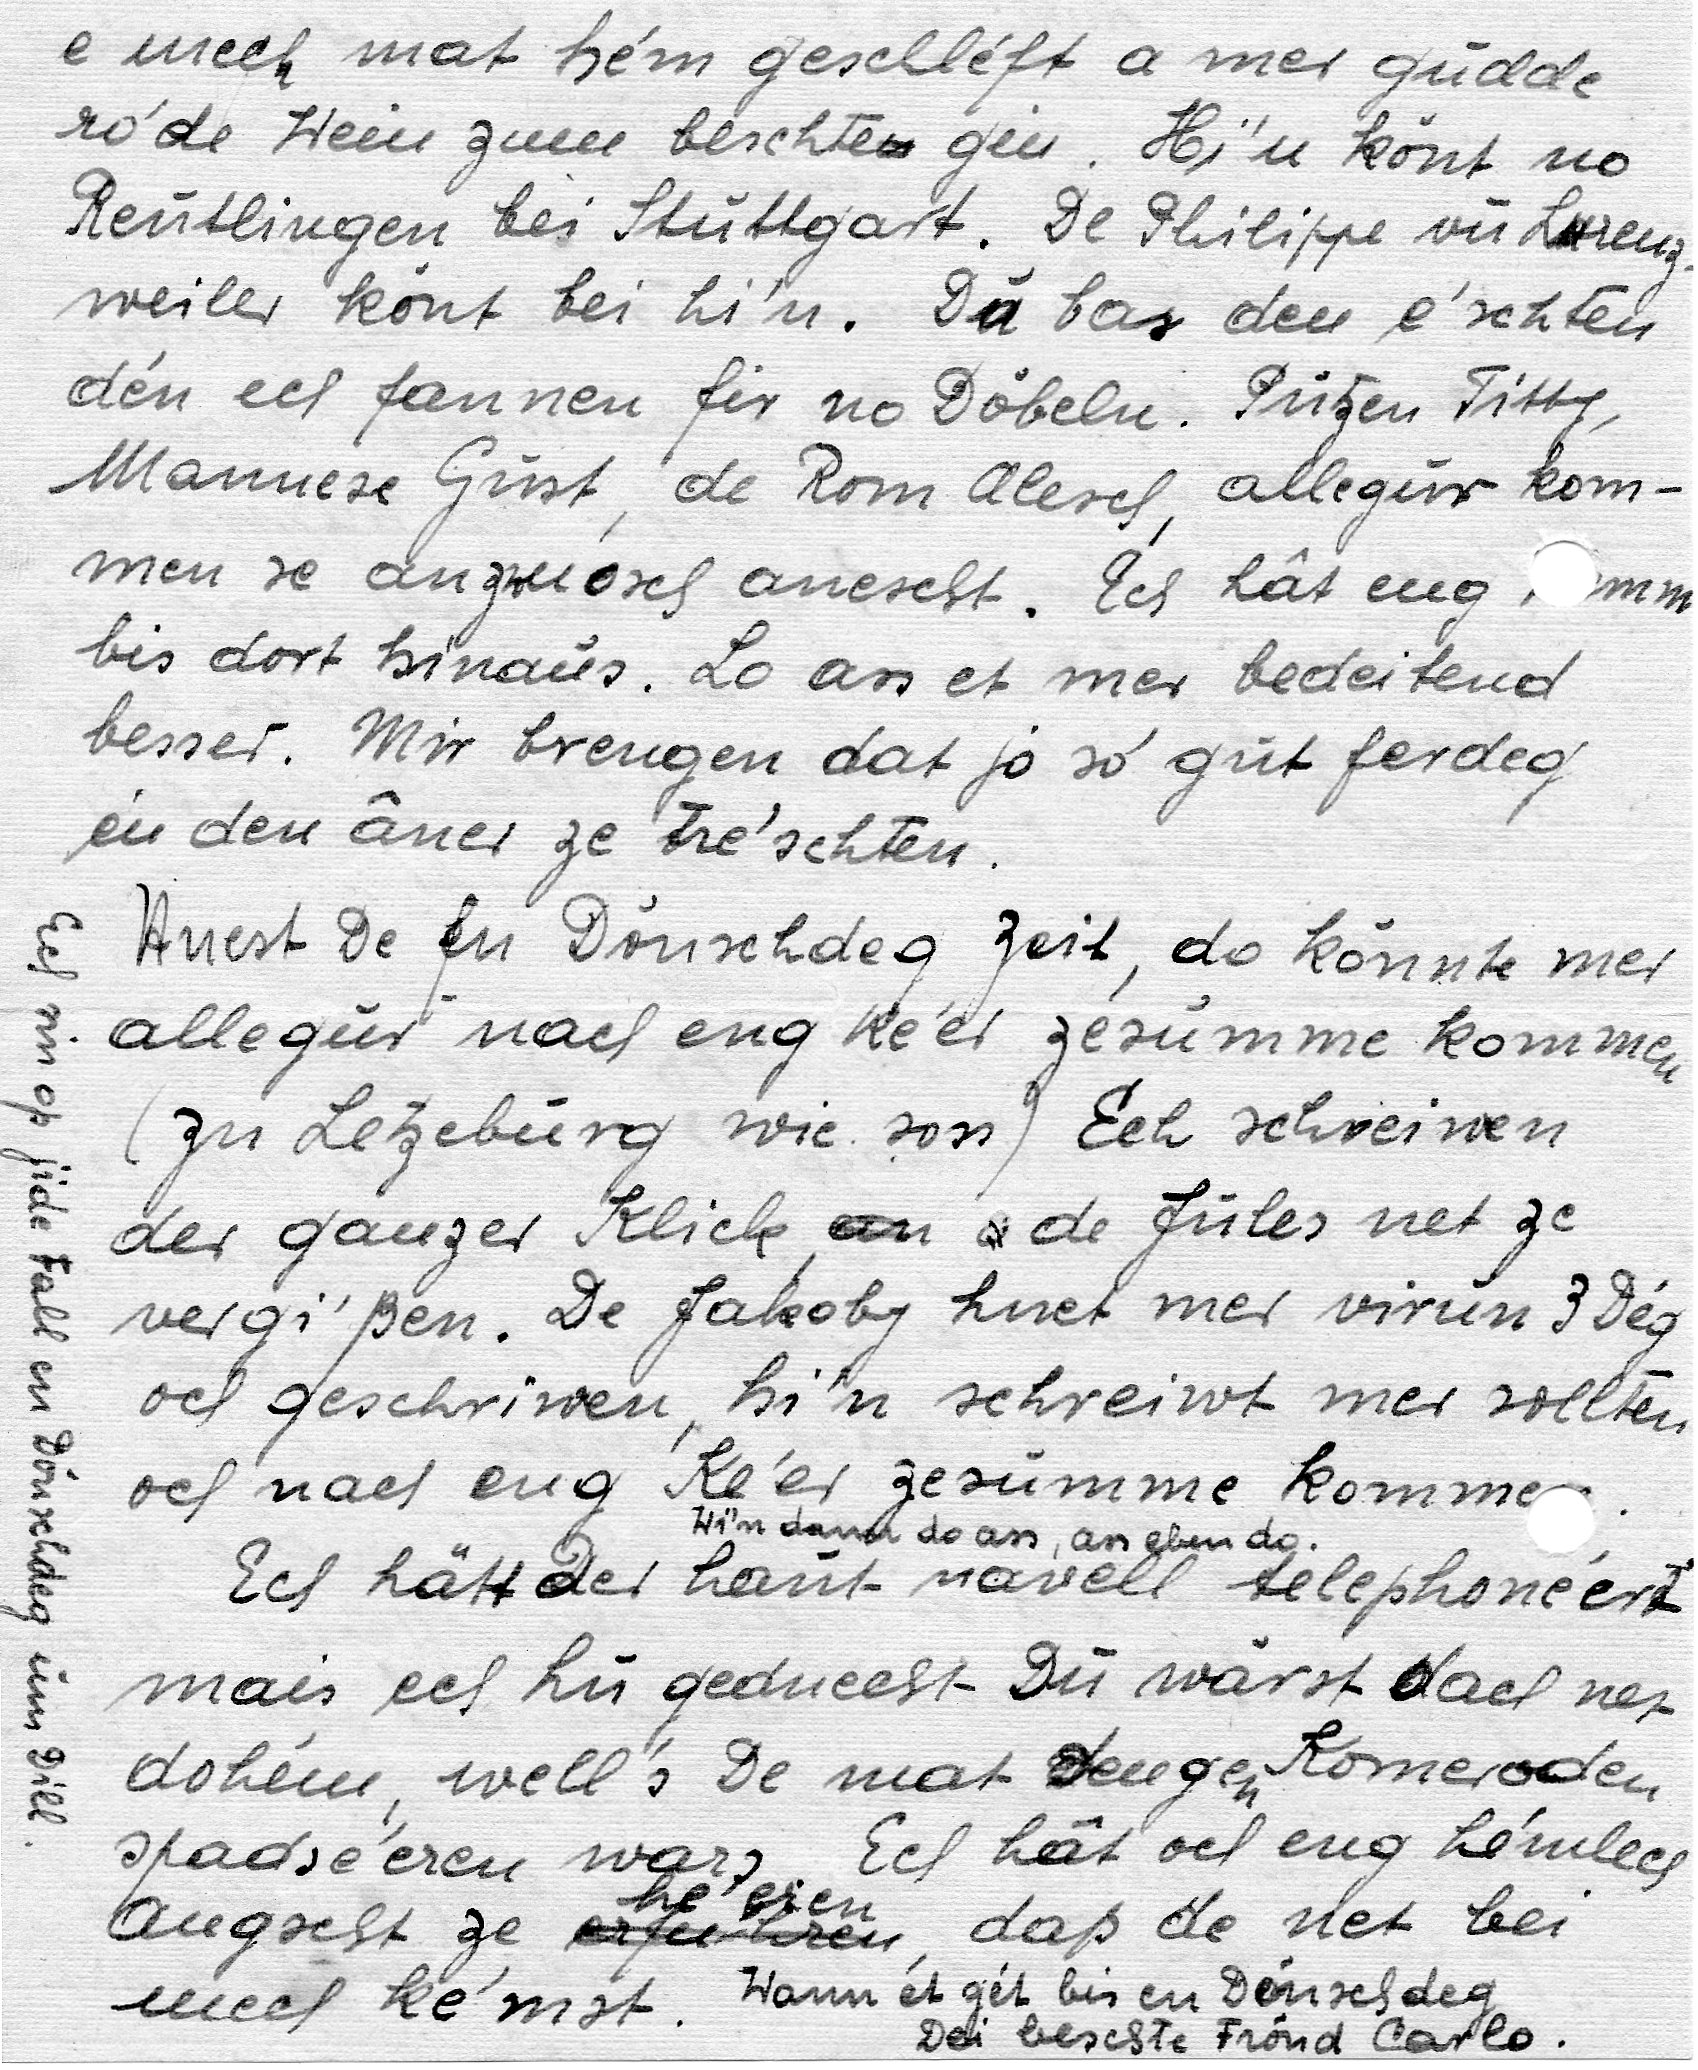 e mech mat hém geschléft a mer gudde
ro'de Wein zum beschten gin. Hi'n könt no
Reutlingen bei Stuttgart. De Philippe vu Lorenz-
weiler könt bei hi'n. Du bas den e'schten
dén ech fannen fir no Döbeln. Putzen Titty,
Mannese Gust, de Rom Alesch, allegur kom-
men se anzwösch anescht. Ech hât eng
bis dort hinaus. Lo ass et mer bedeitend
besser. Mir brengen dat jo so' gut ferdeg
én den âner ze tre'schten.
Huest De en Dönschdeg Zeit, do könnte mer
allegur nach eng ke'er zesumme kommen
(zu Letzeburg wie soss) Ech schreiwen
der ganzer Klick, a de Jules net ze
vergi'ßen. De Jakoby huet mer virun 3 Dég
och geschriwen, hi'n schreiwt mer sollten
och nach eng Ke'er zesumme kommen.
Wi'n dann do ass, ass eben do.
Ech hätt der haut navell telephonéert
mais ech hu geduecht Du wärst dach net
dohém, well's De mat dengen Komeroden
spadse'eren wars Ech hât och eng hémlech
Angscht ze he'eren, daß de net bei
mech ke'mst. Wann ét gét bis en Dönschdeg
Dei beschte Frönd Carlo.
Ech sin op jide Fall en Dönschdeg um Dill.